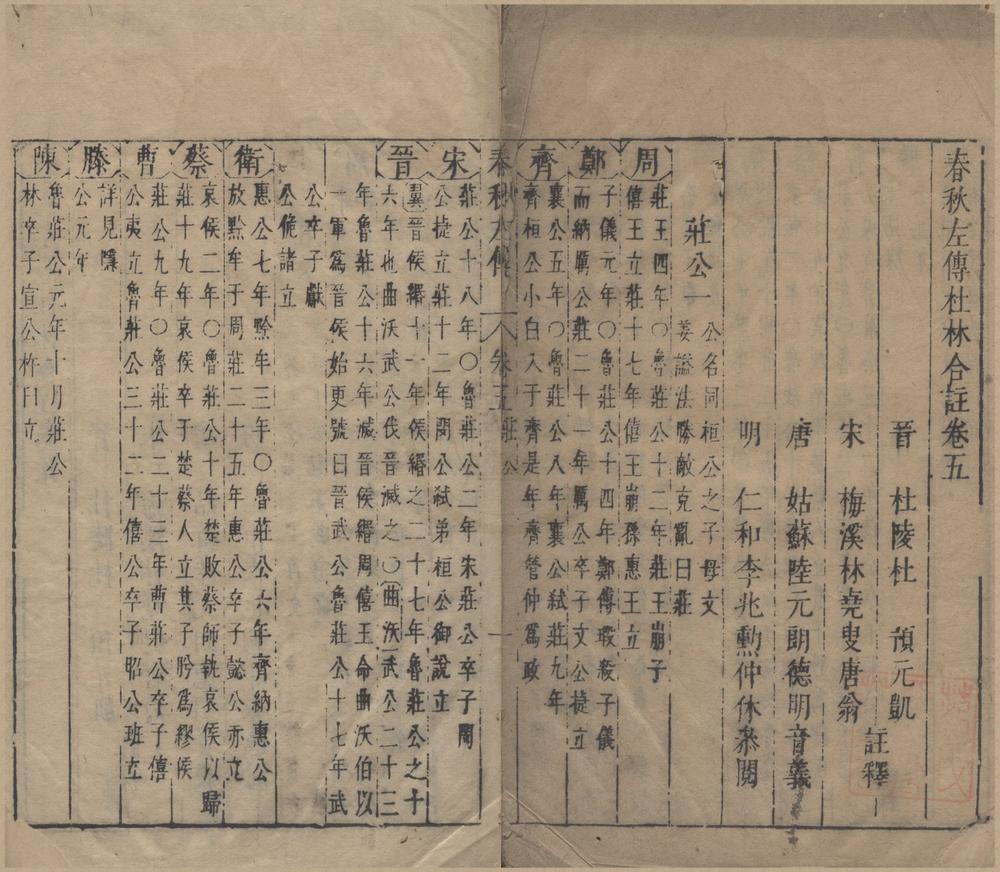 春秋左傳杜林合註卷五
晉　杜陵杜　預元凱
宋　梅溪林堯叟唐翁　註釋
唐　姑蘇陸元朗德明音義
明　仁和李兆勲仲休叅閱
莊公一
公名同桓公之子母文
姜謚法勝敵克亂曰莊
周
莊王四年〇魯莊公十二年莊王崩子
僖王立莊十七年僖王崩孫惠王立
鄭
子儀元年〇魯莊公十四年鄭傅瑕殺子儀
而納厲公莊二十一年厲公卒子文公捷立
齊
襄公五年〇魯莊公八年襄公弑莊九年
齊桓公小白入于齊是年齊管仲爲政
春秋左傳　卷五　莊公　一
宋
莊公十八年〇魯莊公二年宋莊公卒子閔
公捷立莊十二年閔公弑弟桓公御說立
晉
翼晉侯緡十一年侯緡之二十七年魯莊公之十
六年也曲沃武公伐晉滅之〇曲沃武公二十三
年魯莊公十六年滅晉侯緡周僖王命曲沃伯以
一軍爲晉侯始更號曰晉武公魯莊公十七年武
公卒子獻
公佹諸立
衛
惠公七年黔牟三年〇魯莊公六年齊納惠公
放黔牟于周莊二十五年惠公卒子懿公赤立
蔡
哀侯二年〇魯莊公十年楚敗蔡師執哀侯以歸
莊十九年哀侯卒于楚蔡人立其子肸爲繆侯
曹
莊公九年〇魯莊公二十三年曹莊公卒子僖
公夷立魯莊公三十二年僖公卒子昭公班立
滕
詳見隱
公元年
陳
魯莊公元年十月莊公
林卒子宣公杵臼立